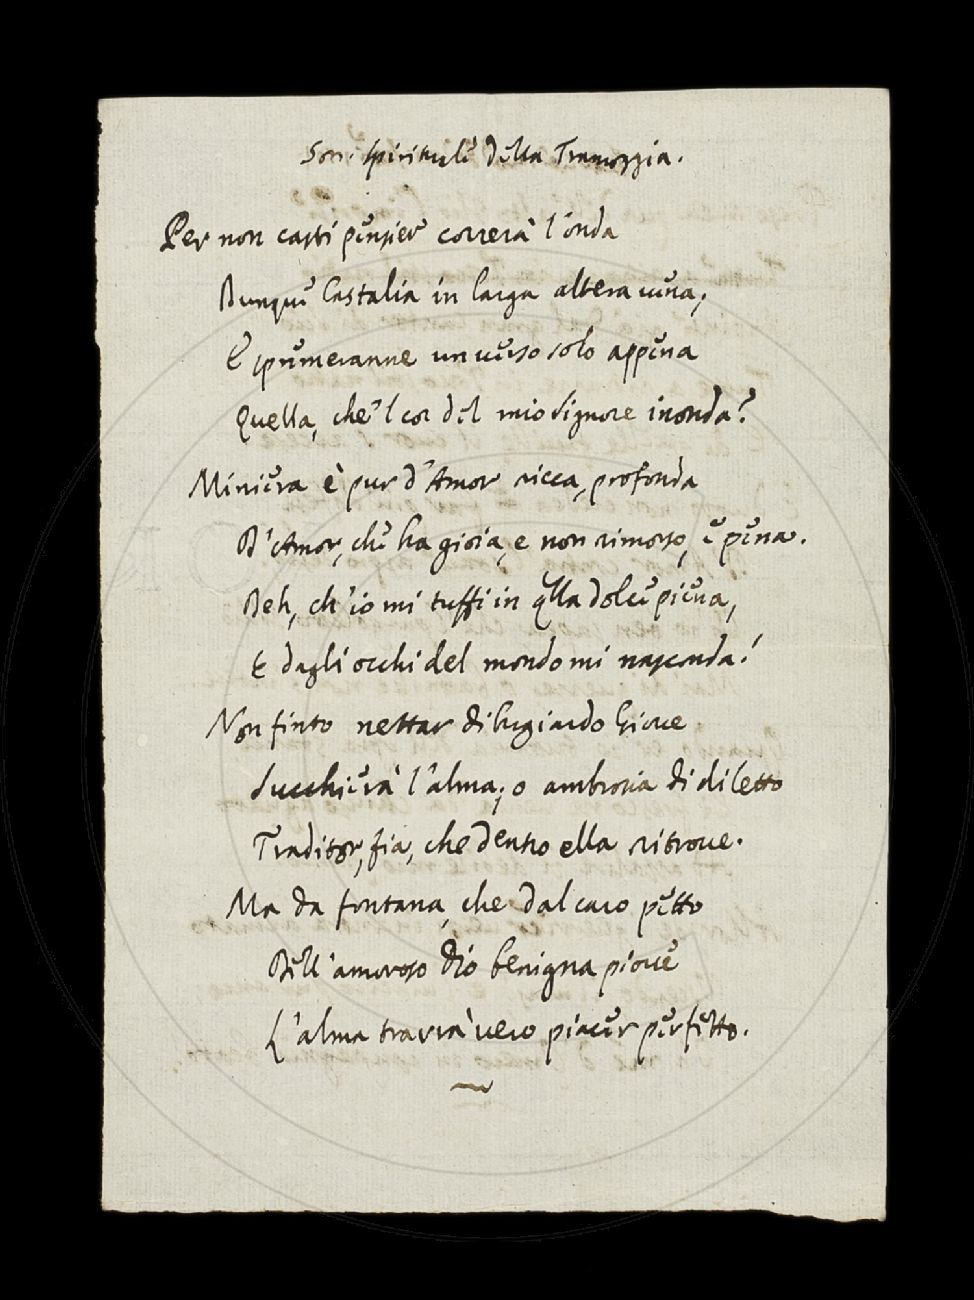 Son: Spirituale della Tramoggia.
Per non casti pensier correrà l'onda
Dunque Castalia in larga altera vena;
E spumeranne un verso solo appena
Quella, che 'l cor del mio Signore inonda?
Miniera è pur d'Amor ricca, profonda
D'Amor, che ha gioia, e non rimorso, e pena.
Deh, ch'io mi tuffi in qlla dolce piena,
E dagli occhi del mondo mi nasconda!
Non finto nettar di bugiardo Giove
Succhierà l'alma; o ambrosia di diletto
Traditor, fia, che dentro ella ritrove.
Ma da fontana, che dal caro petto
Dell'amoroso Dio benigna piove
L'alma trarrà vero piacer perfetto.